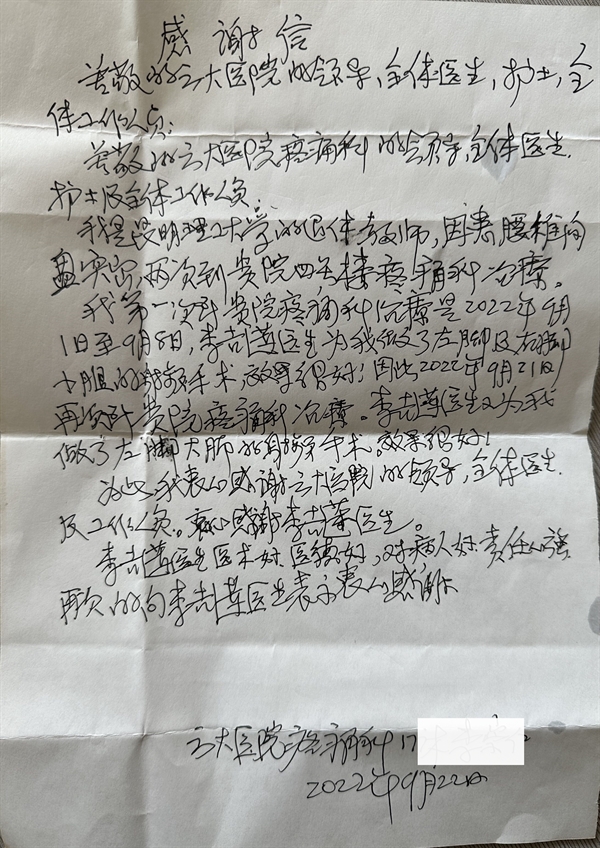 感谢信
尊敬的云大医院的领导，全体医生，护士，全
体工作人员：
尊敬的云大医院疼痛科的领导，全体医生.
护士及全体工作人员.
我是昆明理工大学的退休教师，因患腰椎间
盘突出，两次到贵院四号楼疼痛科治疗。
我第一次到贵院疼痛科治疗是2022年9月
1日至9月8日，李吉莲医生为我做了左脚及右脚
小腿的射频手术，效果很好！因此2022年9月21日
再次到贵院疼痛科治疗。李吉莲医生又为我
做了左脚大腿的射频手术，效果很好！
为此我衷心感谢云大医院的领导，全体医生.
及工作人员。衷心感谢李吉莲医生。
李吉莲医生医术好，医德好，对病人好，责任心强
再次的向李吉莲医生表示衷心感谢
云大医院疼痛科17
2022年9月22日